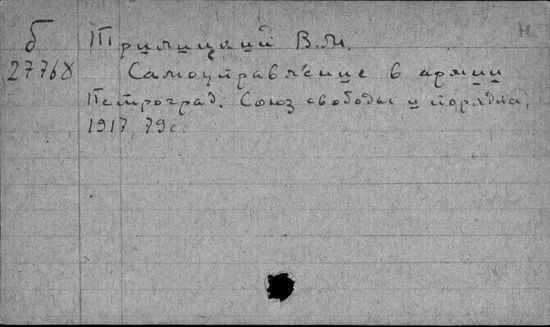 б Трилицкий В.М.
27768 Самоуправление в армии
Петроград: Союз свободы и порядка,
1917, 79 с.